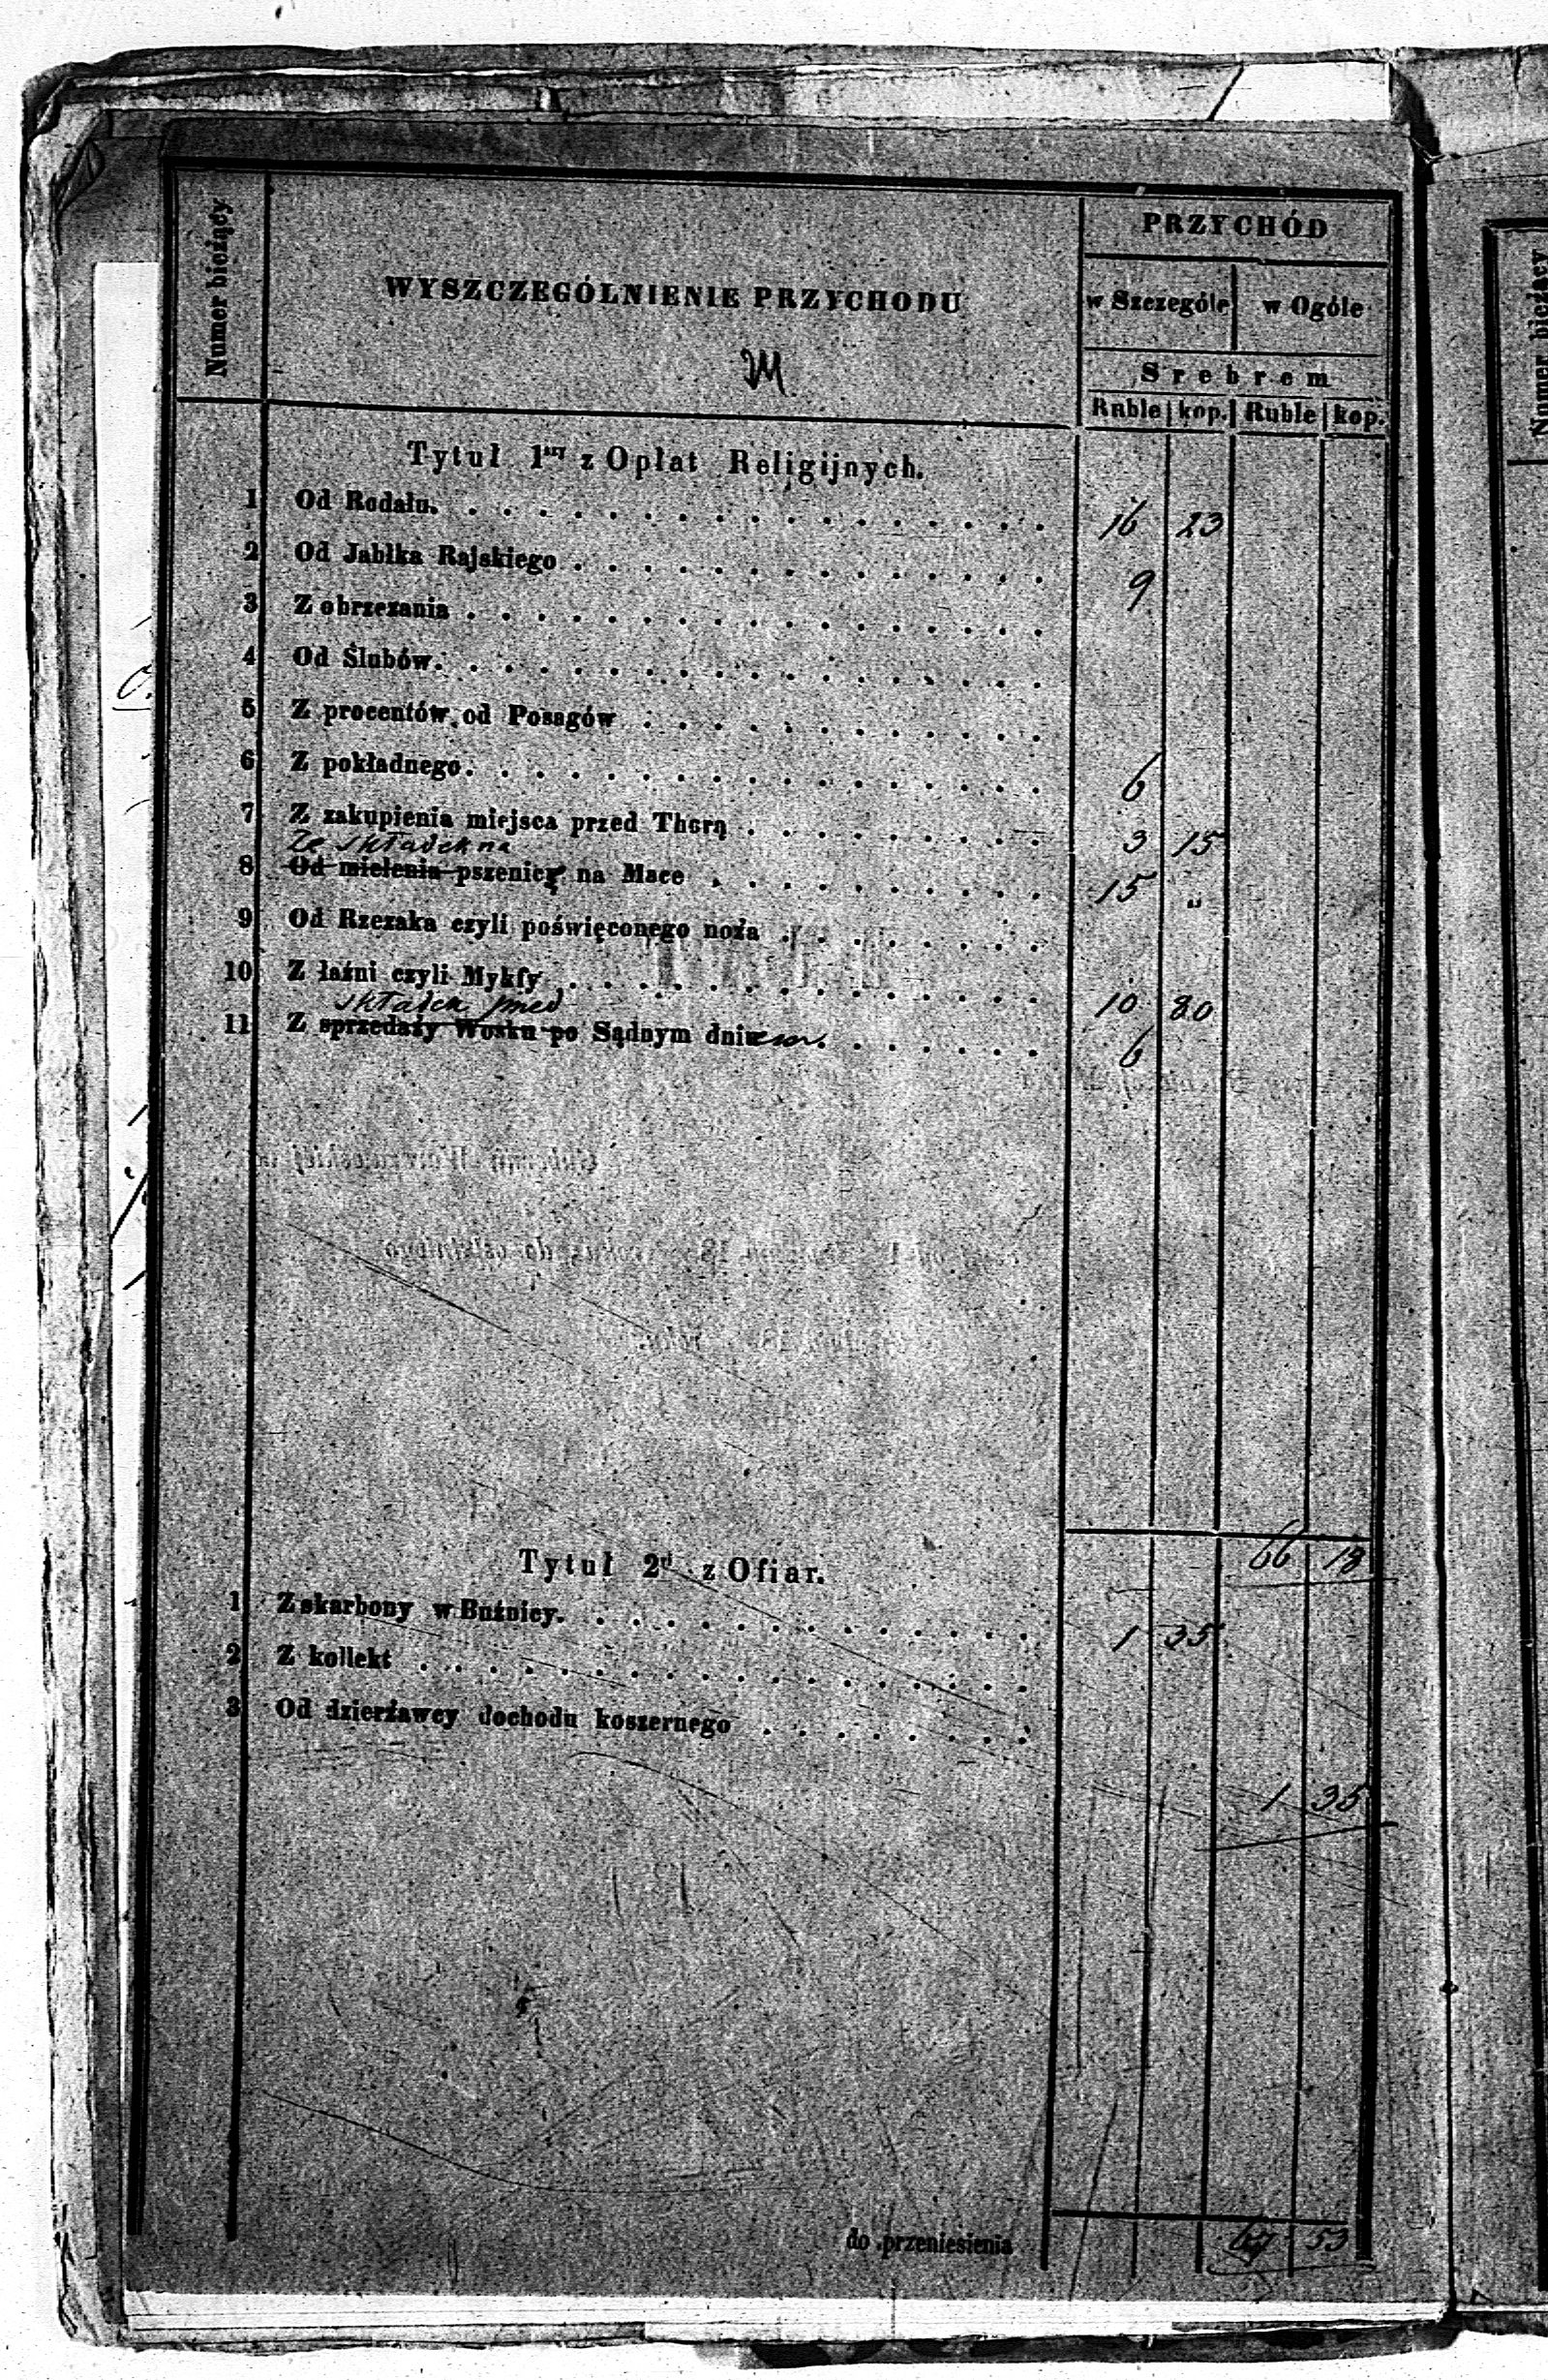 Numer bieżący
WYSZCZEGÓLNIENIE PRZYCHODU
PRZYCHÓD
w Szczególe w Ogóle
Srebrem
Ruble kop. Ruble kop.
Tytuł 1szy z Opłat Religijnych.
1 Od Rodału. 16 23
2 Od Jabłka Rajskiego 9
3 Z obrzezania
4 Od Ślubów.
5 Z procentów od Posagów
6 Z pokładnego. 6
7 Z zakupienia miejsca przed Thorą 3 15
Ze składek na
8 Od mielenia pszenicy na Mace 15 "
9 Od Rzezaka czyli poświęconego noża
10 Z łaźni czyli Mykfy 10 80
składek przed
11 Z sprzedaży Wosku po Sądnym dniem. 6
66 18
Tytuł 2gi z Ofiar.
1 Z skarbony w Bużnicy. 1 35
2 Z kollekt
3 Od dzierżawcy dochodu koszernego
1 35
do przeniesienia 67 53
Numer bieżący